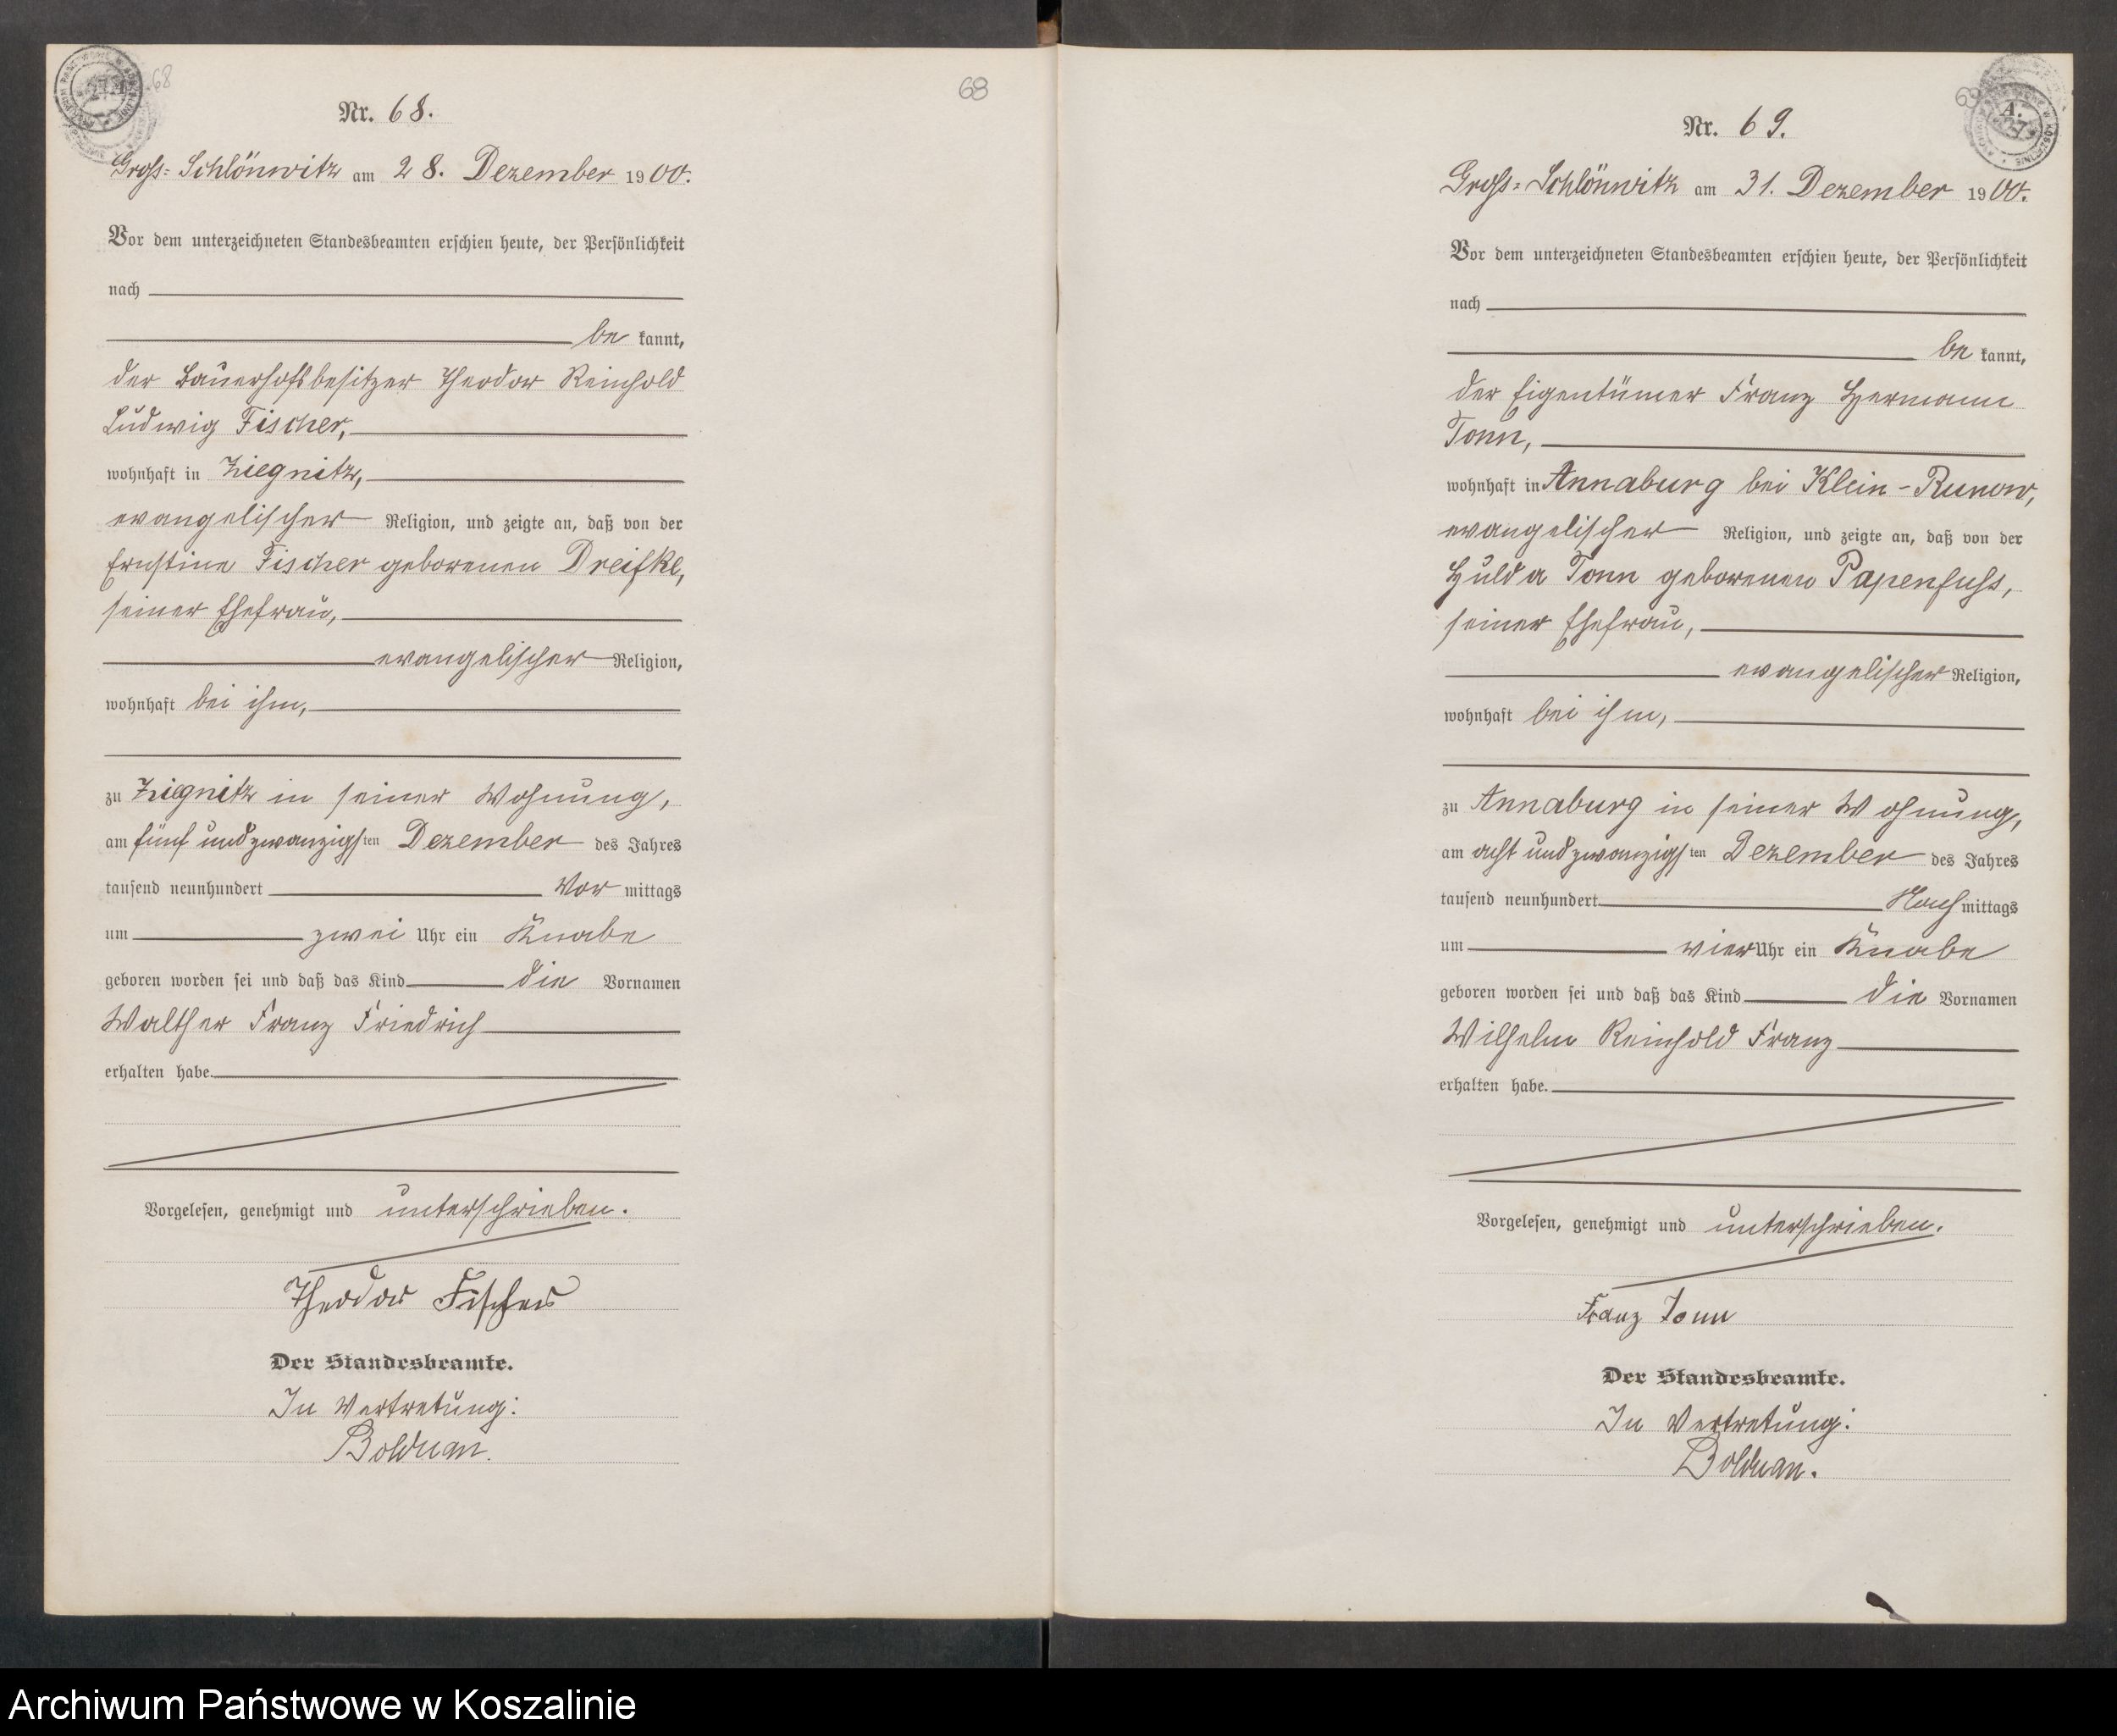 68
Nr. 68.
Gross-Schlönwitz am 28. Dezember 1900.
Vor dem unterzeichneten Standesbeamten erschien heute, der Persönlichkeit
nach
be kannt,
der Bauerhofsbesitzer Theodor Reinhold
Ludwig Fischer,
wohnhaft in Ziegnitz,
evangelischer Religion, und zeigte an, daß von der
Ernstine Fischer geborenen Dreifke,
seiner Ehefrau,
evangelischer Religion,
wohnhaft bei ihm,
zu Ziegnitz in seiner Wohnung,
am fünf und zwanzigsten Dezember des Jahres
tausend neunhundert Vor mittags
um zwei Uhr ein Knabe
geboren worden sei und daß das Kind die Vornamen
Walther Franz Friedrich
erhalten habe.
Vorgelesen, genehmigt und unterschrieben.
Theodor Fischer
Der Standesbeamte.
In Vertretung:
Bolduan.
68
Nr. 69.
Gross-Schlönwitz am 31. Dezember 1900.
Vor dem unterzeichneten Standesbeamten erschien heute, der Persönlichkeit
nach
be kannt,
der Eigentümer Franz Hermann
Tonn,
wohnhaft in Annaburg bei Klein-Runow,
evangelischer Religion, und zeigte an, daß von der
Hulda Tonn geborenen Papenfuss,
seiner Ehefrau,
evangelischer Religion,
wohnhaft bei ihm,
zu Annaburg in seiner Wohnung,
am acht und zwanzigsten Dezember des Jahres
tausend neunhundert Nach mittags
um vier Uhr ein Knabe
geboren worden sei und daß das Kind die Vornamen
Wilhelm Reinhold Franz
erhalten habe.
Vorgelesen, genehmigt und unterschrieben.
Franz Tonn
Der Standesbeamte.
In Vertretung:
Bolduan.
Archiwum Państwowe w Koszalinie